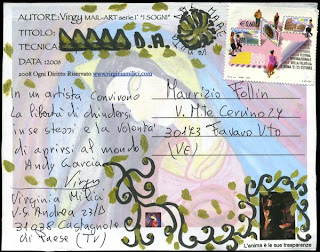 AUTORE: Virgy MAIL-ART serie I "I SOGNI"
TITOLO:
TECNICA D.A.
DATA :2008
2008 Ogni Diritto Riservato www.virginiamilici.com
In un artista convivono
la libertà di chiudersi
in se stessi e la volontà
di aprirsi al mondo
Andy Garcia
Virgy
Virginia Milici
V. S. Andrea 23/D
31038 Castagnole
di Paese (TV)
Maurizio Follin
V. M.te Cervino 24
30173 Favaro V.to
(VE)
MAIL ART
L'anima e le sue trasparenze